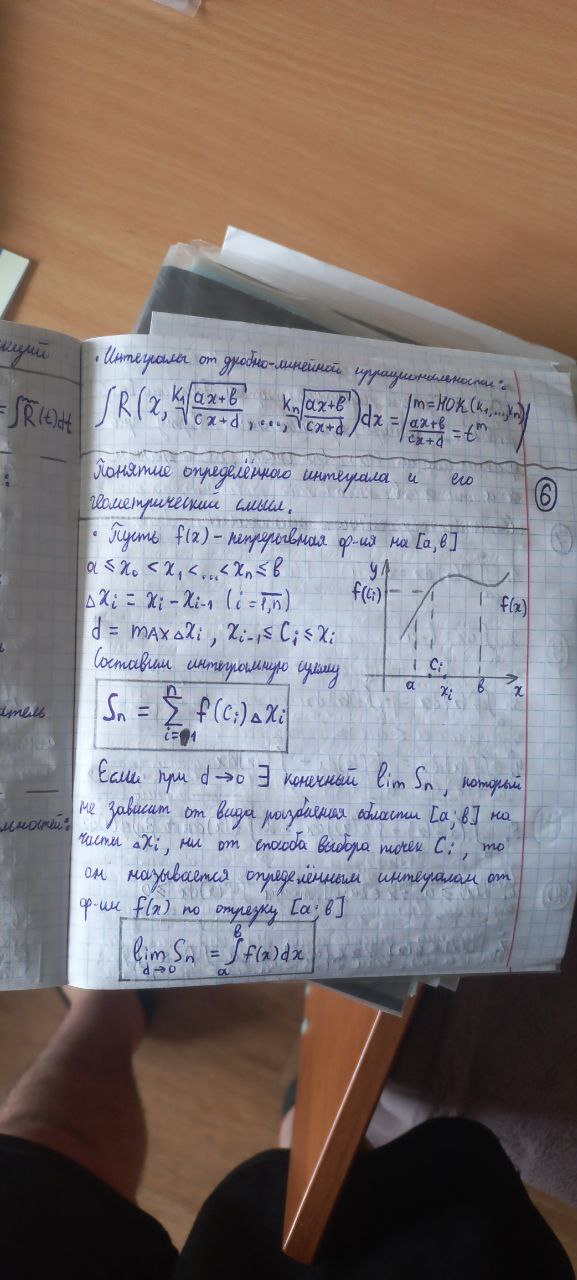 кций
= ∫R̃(t)dt
:
атель
мностей:
• Интегралы от дробно-линейной иррациональности:
∫R(x, ᵏ¹√((ax+b)/(cx+d)), ..., ᵏⁿ√((ax+b)/(cx+d)))dx = | m = НОК(k₁,...,kₙ) |
| (ax+b)/(cx+d) = tᵐ |
Понятие определённого интеграла и его
геометрический смысл.
6
• Пусть f(x) - непрерывная ф-ия на [a,в]
a ≤ x₀ < x₁ < ... < xₙ ≤ в
Δxᵢ = xᵢ - xᵢ₋₁ (i = 1,n)
d = max Δxᵢ, xᵢ₋₁ ≤ Cᵢ ≤ xᵢ
Составим интегральную сумму
Sₙ = ∑ⁿᵢ₌₁ f(Cᵢ)Δxᵢ
y
f(Cᵢ)
f(x)
a
Cᵢ
xᵢ
в
x
Если при d→0 ∃ конечный lim Sₙ, который
не зависит от вида разбиения области [a;в] на
части Δxᵢ, ни от способа выбора точек Cᵢ, то
он называется определённым интегралом от
ф-ии f(x) по отрезку [a;в]
lim Sₙ = ∫ f(x)dx
d→0 a в